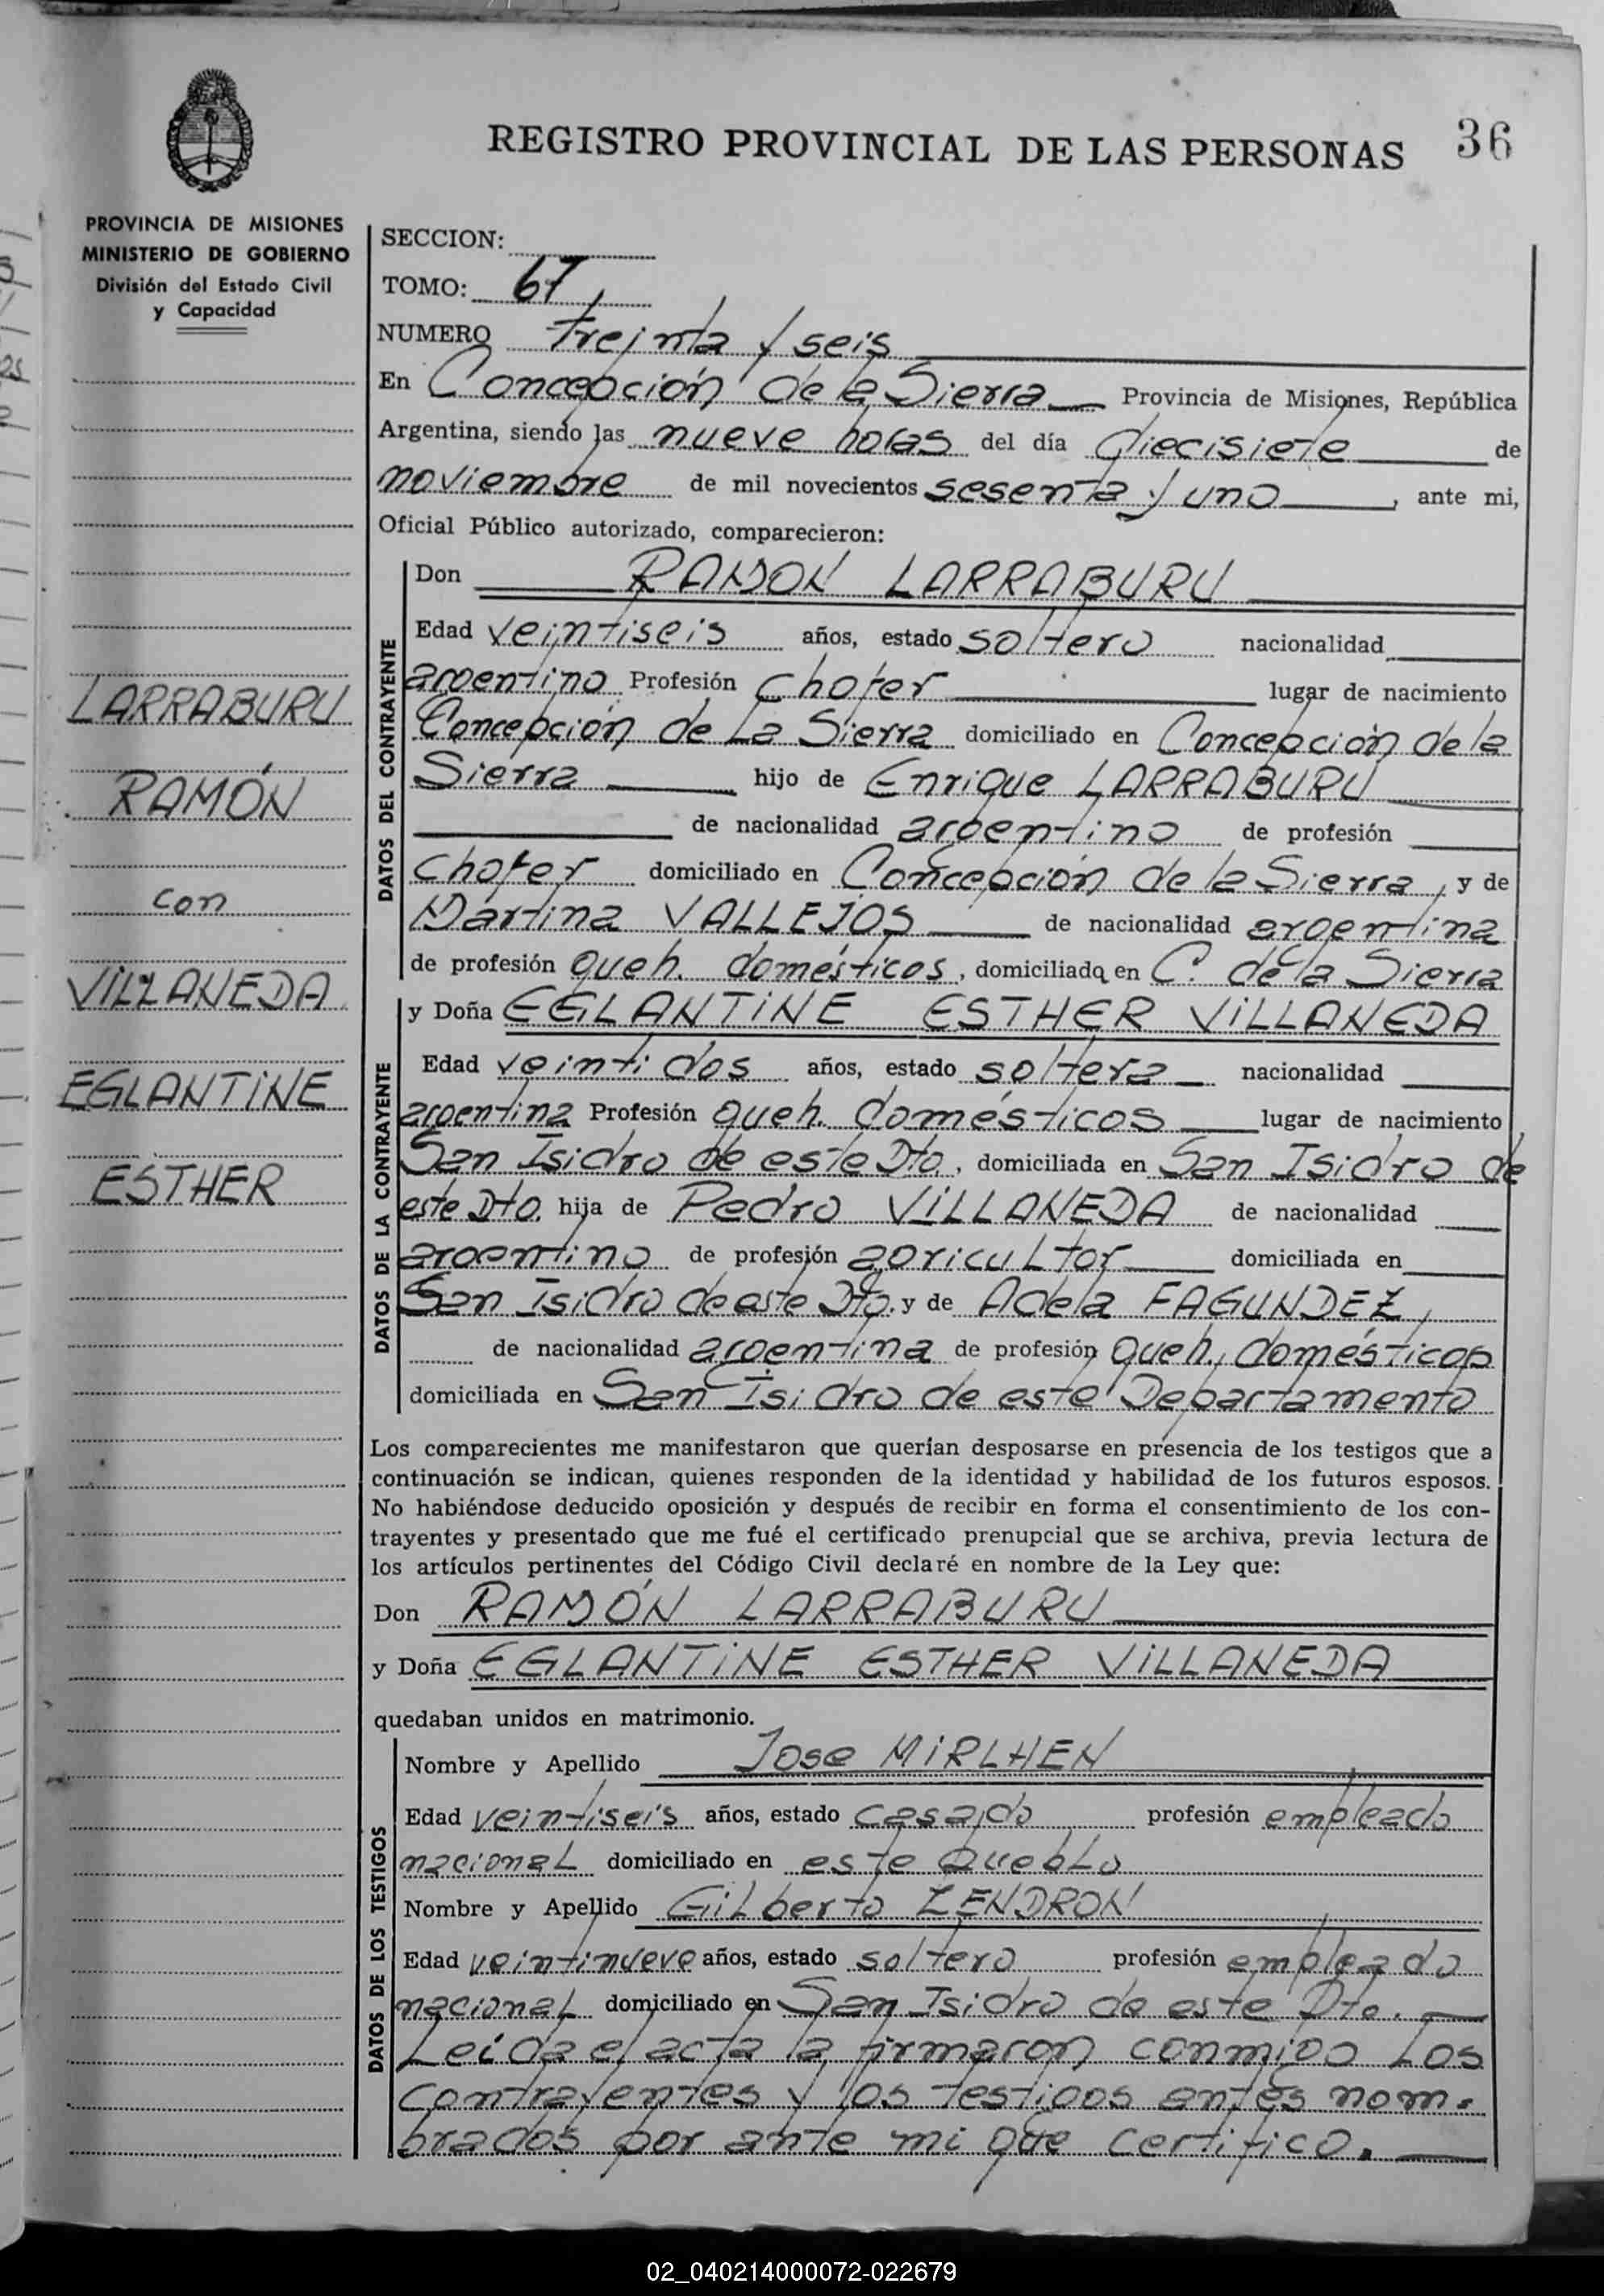 REGISTRO PROVINCIAL DE LAS PERSONAS 36
PROVINCIA DE MISIONES
MINISTERIO DE GOBIERNO
División del Estado Civil
y Capacidad
LARRABURU
RAMÓN
con
VILLANEDA
EGLANTINE
ESTHER
SECCION:
TOMO: 67
NUMERO treinta y seis
En Concepción de la Sierra Provincia de Misiones, República
Argentina, siendo las nueve horas del día diecisiete de
noviembre de mil novecientos sesenta y uno, ante mi,
Oficial Público autorizado, comparecieron:
DATOS DEL CONTRAYENTE
Don RAMON LARRABURU
Edad veintiseis años, estado soltero nacionalidad
argentino Profesión chofer lugar de nacimiento
Concepción de La Sierra domiciliado en Concepción de la
Sierra hijo de Enrique LARRABURU
de nacionalidad argentino de profesión
chofer domiciliado en Concepción de la Sierra, y de
Martina VALLEJOS de nacionalidad argentina
de profesión queh. domésticos, domiciliada en C. de la Sierra
DATOS DE LA CONTRAYENTE
y Doña EGLANTINE ESTHER VILLANEDA
Edad veintidos años, estado soltera nacionalidad
argentina Profesión queh. domésticos lugar de nacimiento
San Isidro de este Dto, domiciliada en San Isidro de
este Dto. hija de Pedro VILLANEDA de nacionalidad
argentino de profesión agricultor domiciliada en
San Isidro de este Dto. y de Adela FAGUNDEZ,
de nacionalidad argentina de profesión queh. domésticos
domiciliada en San Isidro de este Departamento
Los comparecientes me manifestaron que querían desposarse en presencia de los testigos que a
continuación se indican, quienes responden de la identidad y habilidad de los futuros esposos.
No habiéndose deducido oposición y después de recibir en forma el consentimiento de los con-
trayentes y presentado que me fué el certificado prenupcial que se archiva, previa lectura de
los artículos pertinentes del Código Civil declaré en nombre de la Ley que:
Don RAMÓN LARRABURU
y Doña EGLANTINE ESTHER VILLANEDA
quedaban unidos en matrimonio.
DATOS DE LOS TESTIGOS
Nombre y Apellido Jose MIRLHEN
Edad veintiseis años, estado casado profesión empleado
nacional domiciliado en este Pueblo
Nombre y Apellido Gilberto ZENDRON
Edad veintinueve años, estado soltero profesión empleado
nacional domiciliado en San Isidro de este Dto.
Leída el acta la firmaron conmigo Los
contrayentes y los testigos antes nom-
brados por ante mi que certifico.
02_040214000072-022679